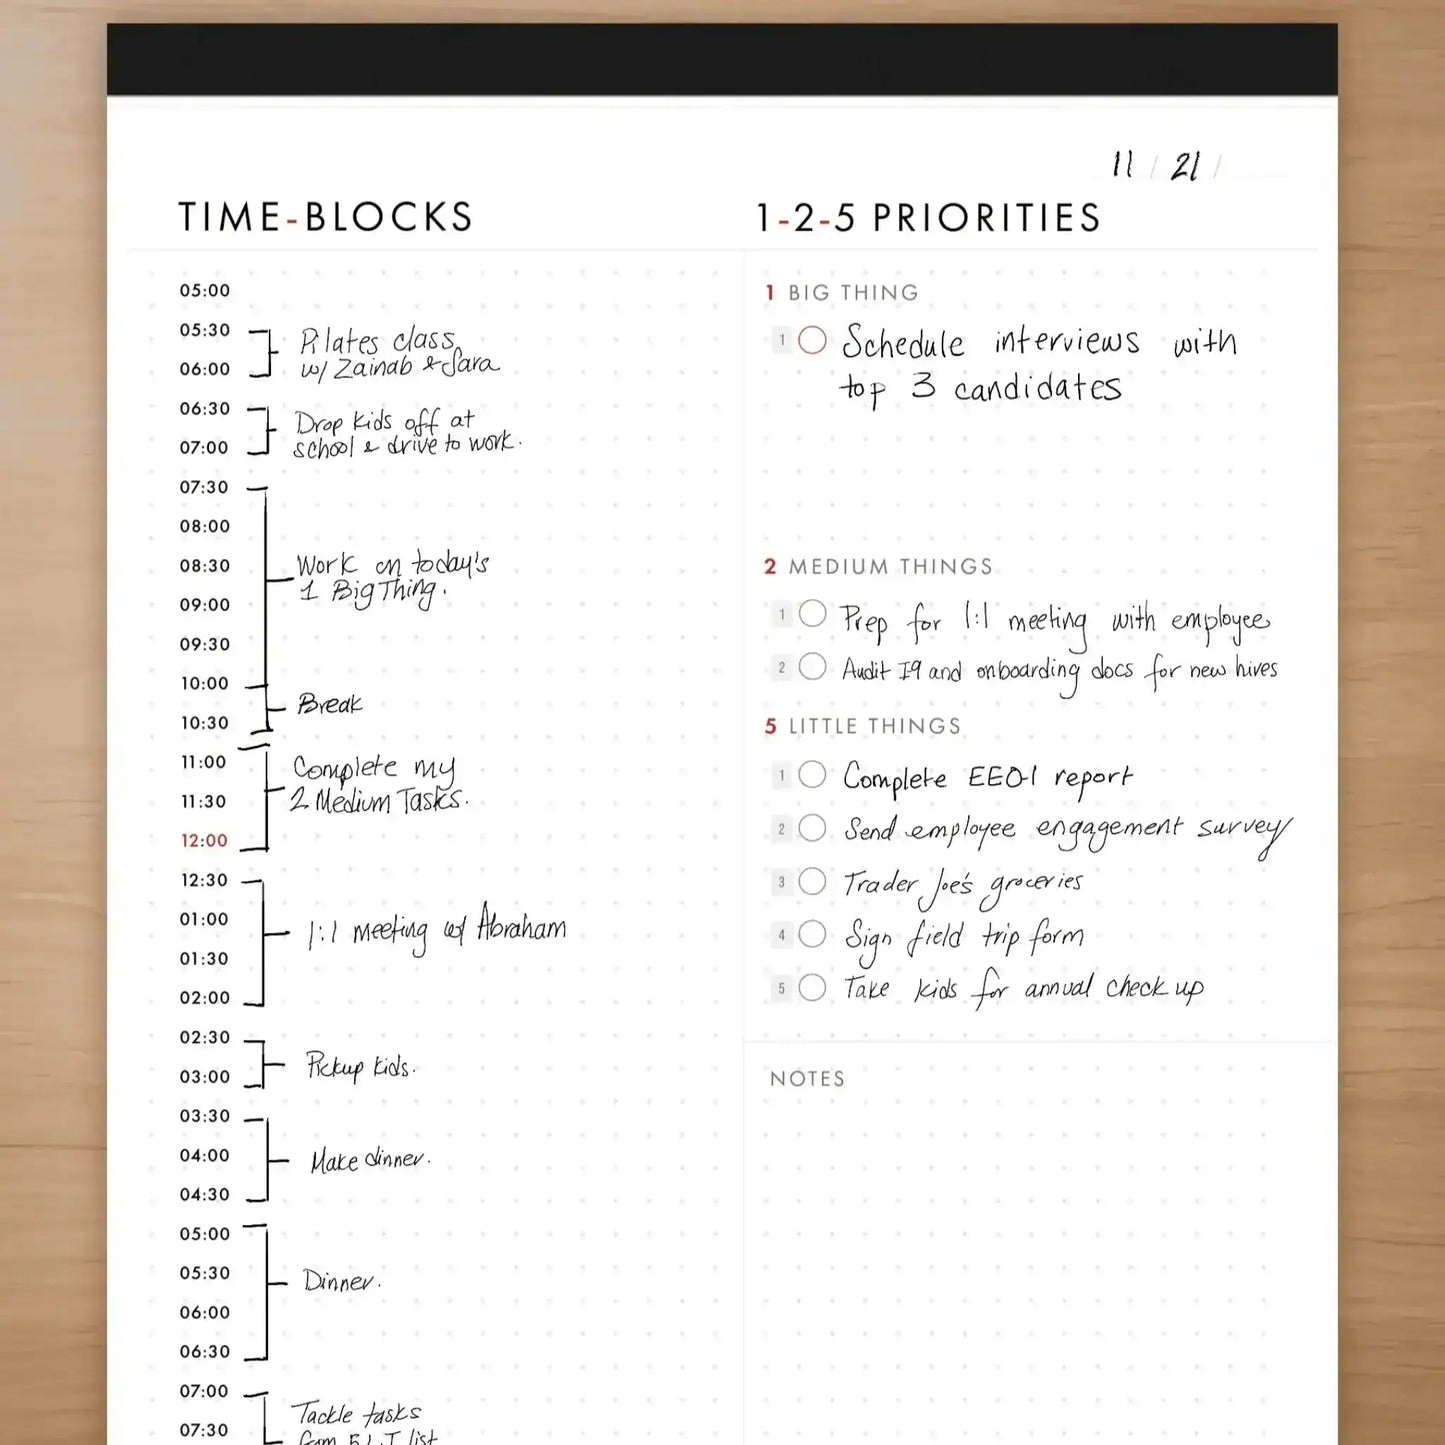 11 / 21 /
TIME-BLOCKS
05:00
05:30
06:00
Pilates class
w/ Zainab & Sara
06:30
07:00
Drop kids off at
school & drive to work.
07:30
08:00
08:30
09:00
09:30
10:00
Work on today's
1 Big Thing.
10:30
Break
11:00
11:30
12:00
Complete my
2 Medium Tasks.
12:30
01:00
01:30
02:00
1:1 meeting w/ Abraham
02:30
03:00
Pickup kids.
03:30
04:00
04:30
Make dinner.
05:00
05:30
06:00
06:30
Dinner.
07:00
07:30
Tackle tasks
from 5 L.T list
1-2-5 PRIORITIES
1 BIG THING
1 Schedule interviews with
top 3 candidates
2 MEDIUM THINGS
1 Prep for 1:1 meeting with employee
2 Audit I9 and onboarding docs for new hires
5 LITTLE THINGS
1 Complete EEO-1 report
2 Send employee engagement survey
3 Trader Joe's groceries
4 Sign field trip form
5 Take kids for annual check up
NOTES